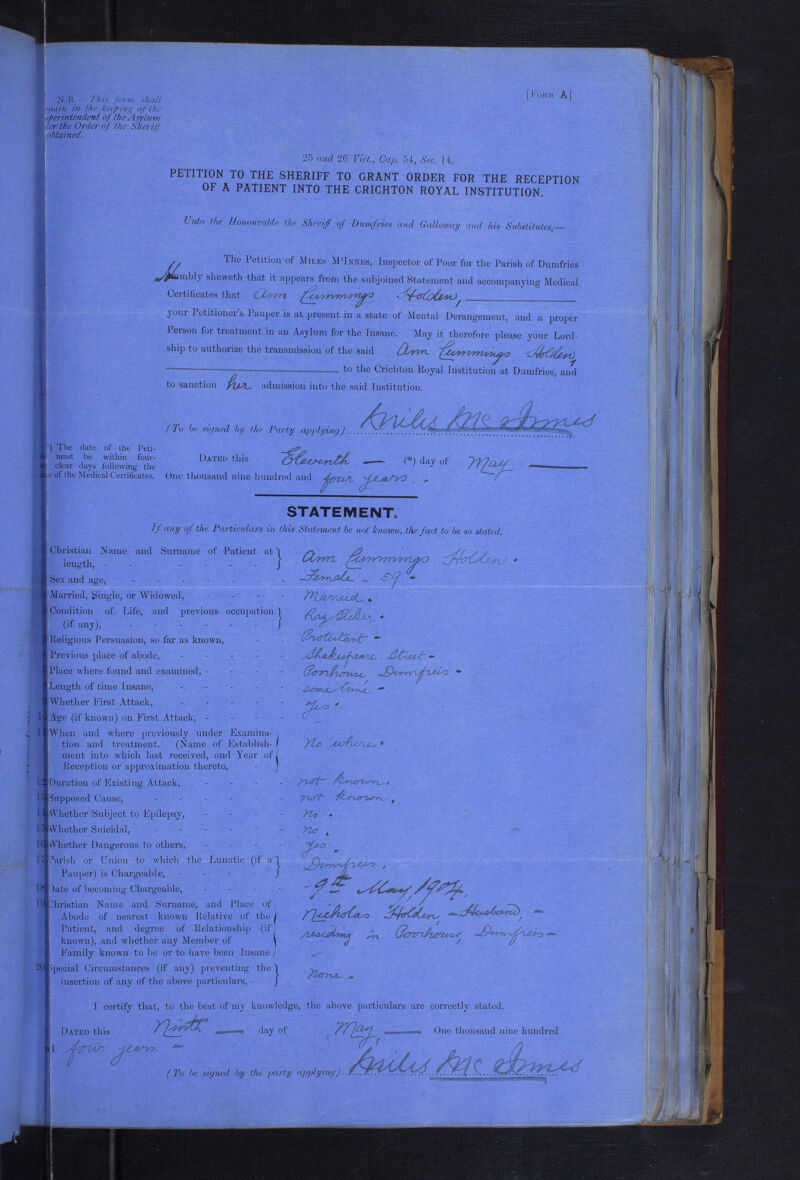 N.B.—This form shall
main in the keeping of the
perintendent of the Asylum
der the Order of the Sheriff
obtained.
[FORM A]
25 and 26 Vict., Cap. 54, Sec. 14.
PETITION TO THE SHERIFF TO GRANT ORDER FOR THE RECEPTION
OF A PATIENT INTO THE CRICHTON ROYAL INSTITUTION.
Unto the Honourable the Sheriff of Dumfries and Galloway and his Substitutes,—
The Petition of MILES M'INNES, Inspector of Poor for the Parish of Dumfries
Humbly sheweth that it appears from the subjoined Statement and accompanying Medical
Certificates that Ann Cummings Holden,
your Petitioner's Pauper is at present in a state of Mental Derangement, and a proper
Person for treatment in an Asylum for the Insane. May it therefore please your Lord-
ship to authorize the transmission of the said Ann Cummings Holden,
to the Crichton Royal Institution at Dumfries, and
to sanction her admission into the said Institution.
(To be signed by the Party applying) Miles McInnes
) The date of the Peti-
must be within four-
clear days following the
s of the Medical Certificates.
DATED this Eleventh — (*) day of May
One thousand nine hundred and four years.
STATEMENT.
If any of the Particulars in this Statement be not known, the fact to be so stated.
Christian Name and Surname of Patient at length, - Ann Cummings Holden.
Sex and age, - Female - 59 -
Married, Single, or Widowed, - Married.
Condition of Life, and previous occupation (if any), - Rag Picker.
Religious Persuasion, so far as known, - Protestant -
Previous place of abode, - Shakespeare Street -
Place where found and examined, - Poorhouse, Dumfries -
Length of time Insane, - some time -
Whether First Attack, - Yes.
10 Age (if known) on First Attack, - -
11 When and where previously under Examina-
tion and treatment. (Name of Establish-
ment into which last received, and Year of
Reception or approximation thereto, - No where.
12 Duration of Existing Attack, - not known.
13 Supposed Cause, - not known.
14 Whether Subject to Epilepsy, - No.
15 Whether Suicidal, - No.
16 Whether Dangerous to others, - Yes.
17 Parish or Union to which the Lunatic (if a
Pauper) is Chargeable, - Dumfries.
18 Date of becoming Chargeable, - 9th May, 1904.
19 Christian Name and Surname, and Place of
Abode of nearest known Relative of the
Patient, and degree of Relationship (if
known), and whether any Member of
Family known to be or to have been Insane
Nicholas Holden, - Husband, -
residing in Poorhouse, Dumfries -
20 Special Circumstances (if any) preventing the
insertion of any of the above particulars, - None -
I certify that, to the best of my knowledge, the above particulars are correctly stated.
DATED this Ninth day of May One thousand nine hundred
four years. -
(To be signed by the party applying) Miles McInnes